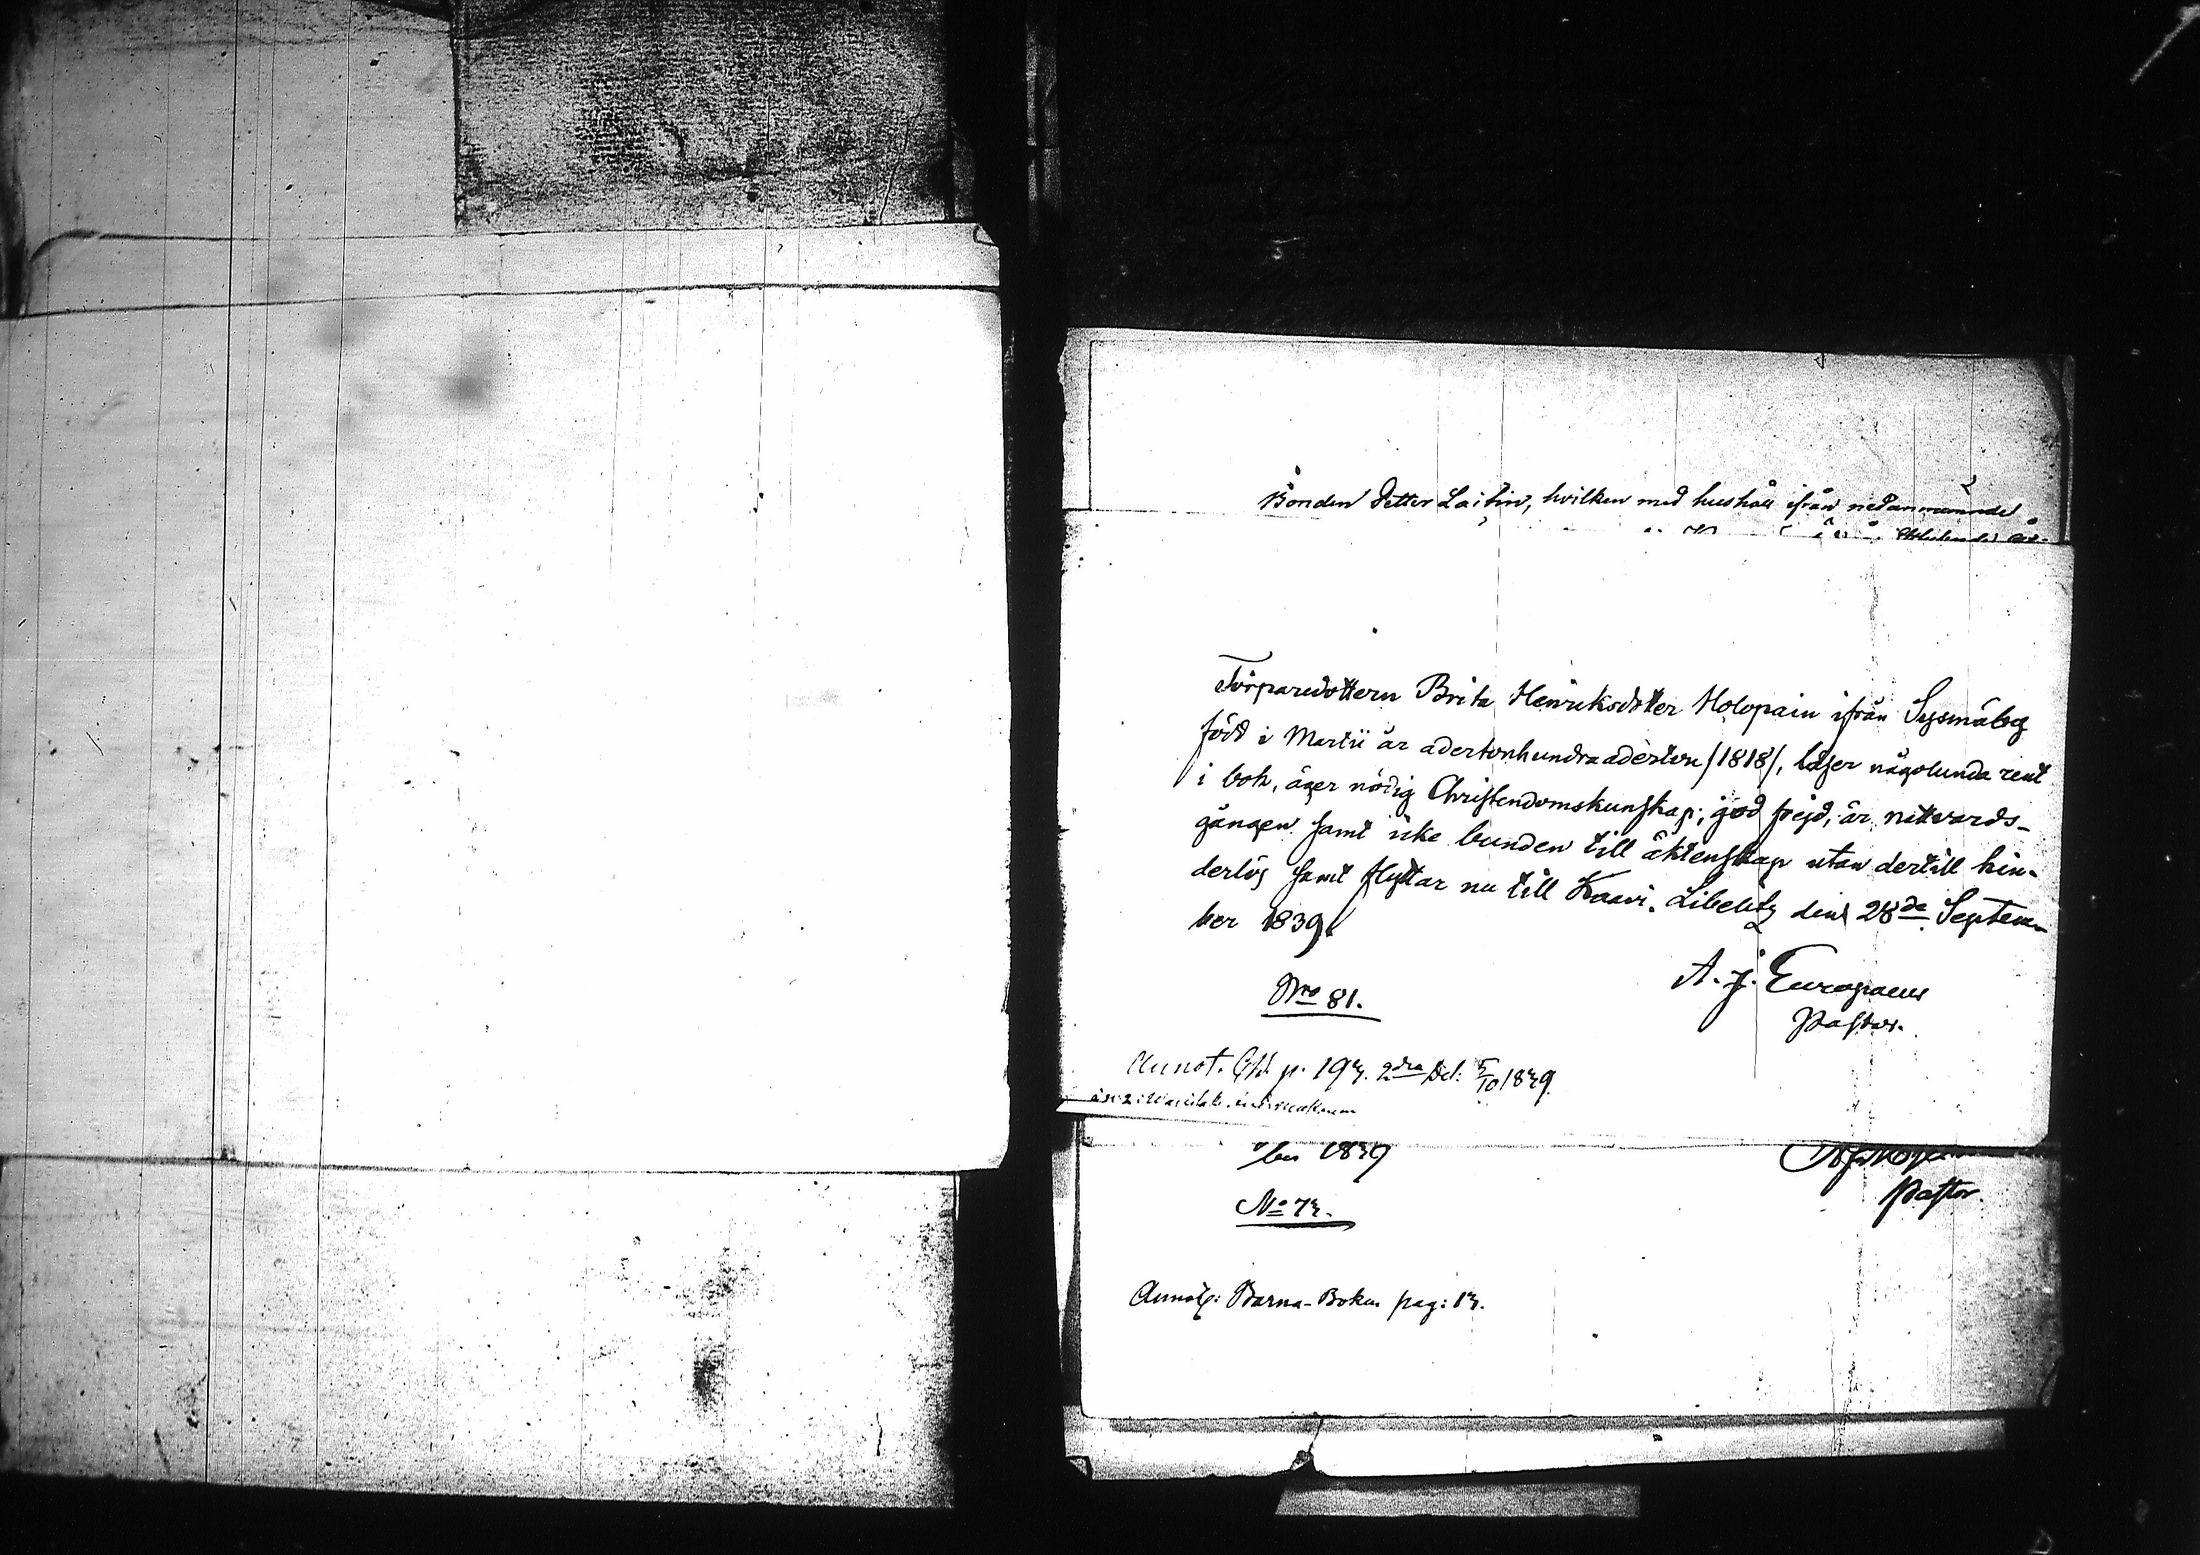 Bonden Petter Laitin, hvilken med hushåll ifrån nedannämnde
Torparedottern Brita Henriksdotter Holopain ifrån Sysmäby
född i Martii år adertonhundraaderton /1818/, läser någolunda rent
i bok, äger nödig Christendomskunskap; god frejd, är nattvards-
gången samt icke bunden till äktenskap utan dertill hin-
derlös samt flyttar nu till Kaavi. Libelitz den 28de Septem-
ber 1839.
A. J. Europaeus
Pastor.
Nro 81.
Annot. p. 193. 2dra Del: 5/10 1839.
ber 1839
Pastor
No 73.
Annot: Barna-Boken pag: 13.